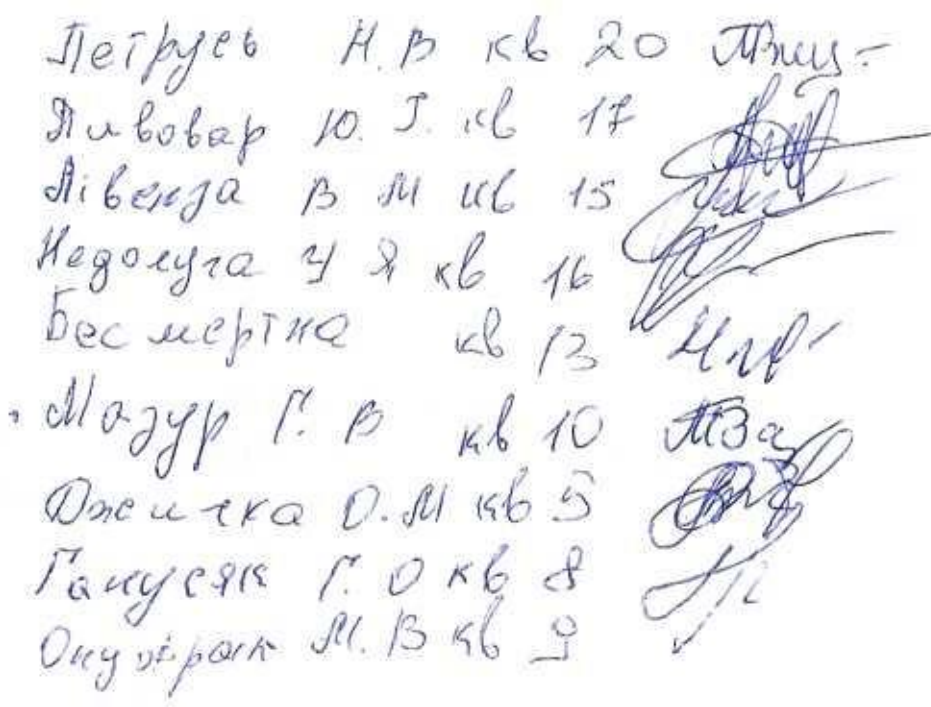 Петрусь Н.В кв 20
Пивовар Ю. Г. кв 17
Лівенза В М кв 15
Недолуга У Я кв 16
Бесмертна кв 13
Мазур Г. В кв 10
О.М кв 5
Ганусяк Г. О кв 8
М. В кв 9